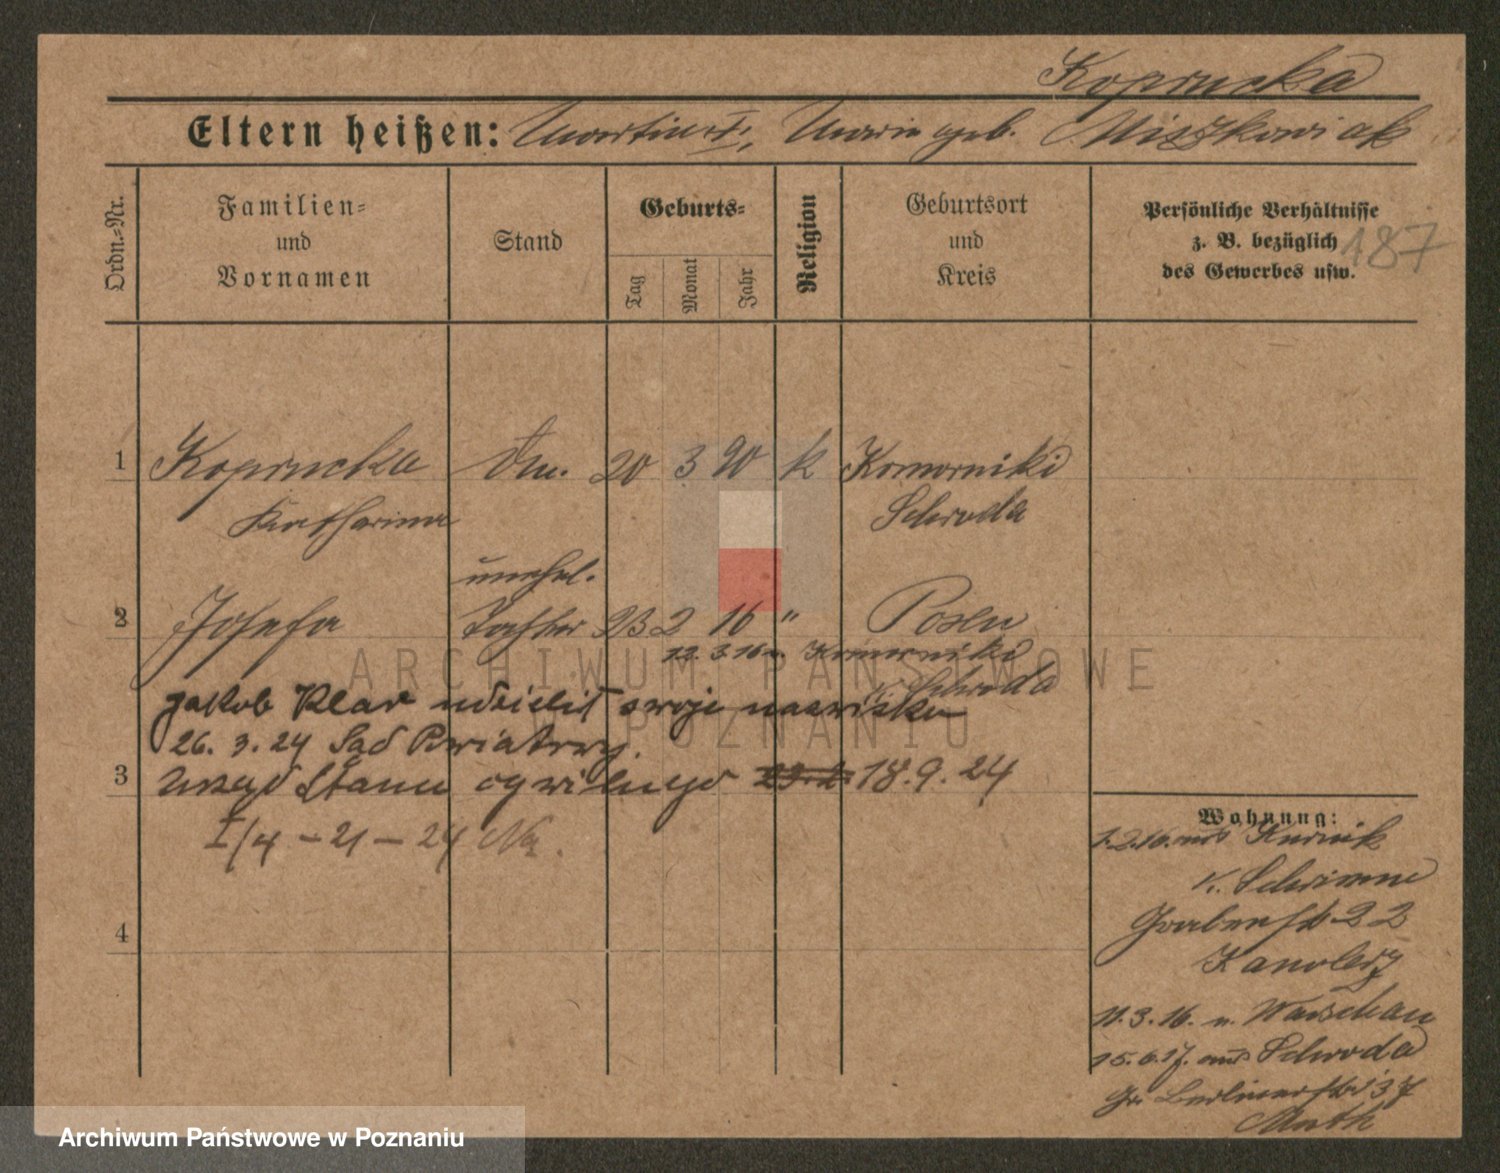 Koprucka
Eltern heißen: Martin u. Marie geb. Miszkowiak
Ordn.-Nr.
Familien-
und
Vornamen
Stand
Geburts-
Tag
Monat
Jahr
Religion
Geburtsort
und
Kreis
Persönliche Verhältnisse
z. B. bezüglich
des Gewerbes usw.
187
1 Koprucka Dm. 20 3 90 k Komorniki
Katharina Schroda
unehel.
2 Josefa Tochter 23 2 16 " Posen
12. 3. 16 n. Komorniki
K. Schroda
Jakob Klar udzielił swoje nazwisko
26. 3. 24 Sąd Powiatowy.
3 Urząd Stanu cywilnego 18. 9. 24
I/4 - 21 - 24
4
Wohnung:
1. 2. 16. aus Kurnik
K. Schrimm
Grabenstr 22
11. 3. 16. n. Warschau
15. 6. 17. aus Schroda
Gr. Berlinerstr 37
ARCHIWUM PAŃSTWOWE
W POZNANIU
Archiwum Państwowe w Poznaniu